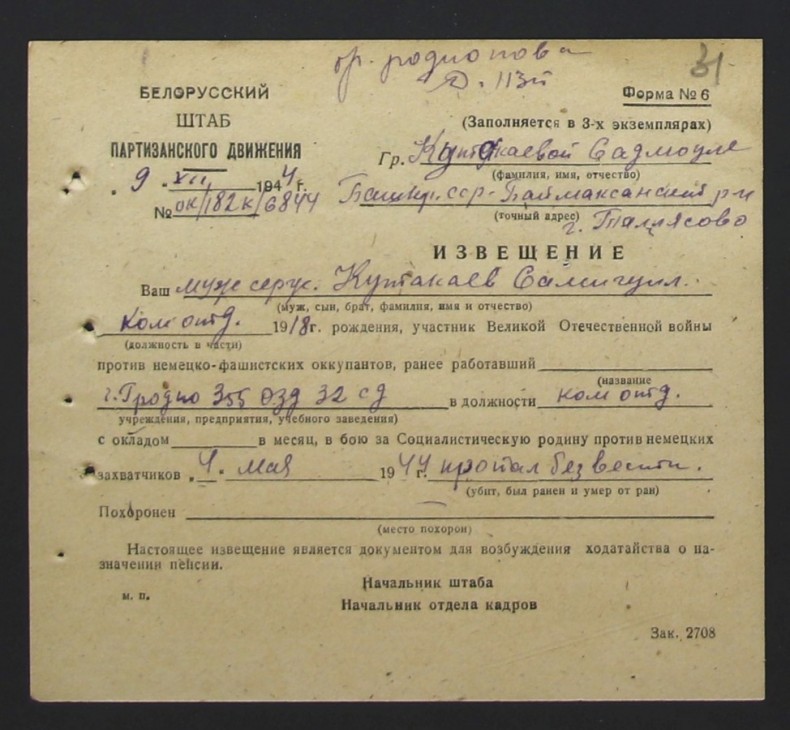 бр. родионова
31
БЕЛОРУССКИЙ
Форма № 6
ШТАБ
(Заполняется в 3-х экземплярах)
ПАРТИЗАНСКОГО ДВИЖЕНИЯ
Гр. Кутакаевой
(фамилия, имя, отчество)
9 - XII 1944 г.
Башкир. сср. р-н
№ ок/182к/6844
(точный адрес)
г. Таллясово
ИЗВЕЩЕНИЕ
Ваш муж серж. Кутакаев Самигул.
(муж, сын, брат, фамилия, имя и отчество)
ком отд. 1918г. рождения, участник Великой Отечественной войны
(должность в части)
против немецко-фашистских оккупантов, ранее работавший
(название
г. Гродно 355 ОЗД 32 сд в должности ком отд.
учреждения, предприятия, учебного заведения)
с окладом в месяц, в бою за Социалистическую родину против немецких
захватчиков 4. мая 1944 г. пропал без вести.
(убит, был ранен и умер от ран)
Похоронен
(место похорон)
Настоящее извещение является документом для возбуждения ходатайства о на-
значении пенсии.
Начальник штаба
м. п.
Начальник отдела кадров
Зак. 2708